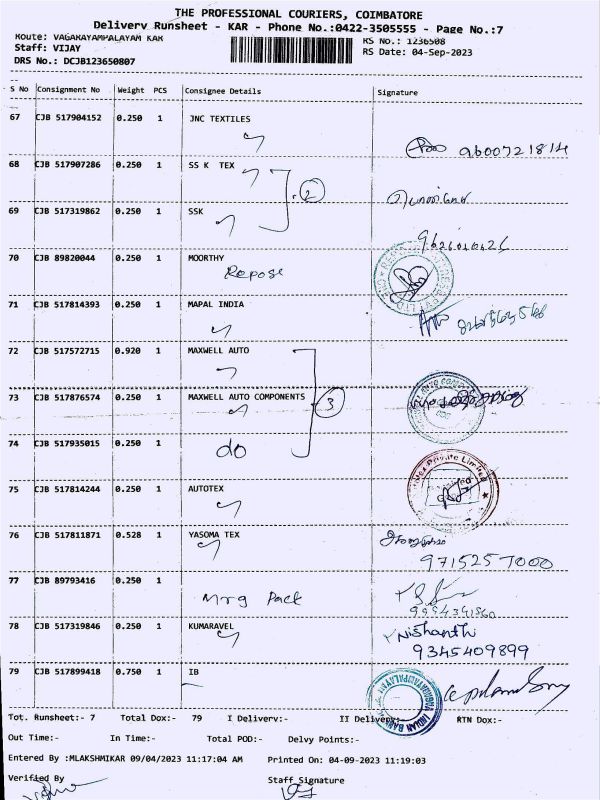 THE PROFESSIONAL COURIERS, COIMBATORE
Delivery Runsheet - KAR - Phone No.:0422-3505555 - Page No.:7
Route: VAGARAYAMPALAYAM KAR
RS No.: 1236508
Staff: VIJAY
RS Date: 04-Sep-2023
DRS No.: DCJB123650807
S No Consignment No Weight PCS Consignee Details Signature
67 CJB 517904152 0.250 1 JNC TEXTILES
9600721814
68 CJB 517907286 0.250 1 SS K TEX
2
69 CJB 517319862 0.250 1 SSK
70 CJB 89820044 0.250 1 MOORTHY
Repose
71 CJB 517814393 0.250 1 MAPAL INDIA
72 CJB 517572715 0.920 1 MAXWELL AUTO
73 CJB 517876574 0.250 1 MAXWELL AUTO COMPONENTS
3
74 CJB 517935015 0.250 1 do
Private Limited
75 CJB 517814244 0.250 1 AUTOTEX
76 CJB 517811871 0.528 1 YASOMA TEX
9715257000
77 CJB 89793416 0.250 1
Mrg Pack
78 CJB 517319846 0.250 1 KUMARAVEL
Nishanthi
9345409899
79 CJB 517899418 0.750 1 IB
INDIAN BANK
Tot. Runsheet:- 7 Total Dox:- 79 I Delivery:- II Delivery:- RTN Dox:-
Out Time:- In Time:- Total POD:- Delvy Points:-
Entered By :MLAKSHMIKAR 09/04/2023 11:17:04 AM Printed On: 04-09-2023 11:19:03
Verified By Staff Signature